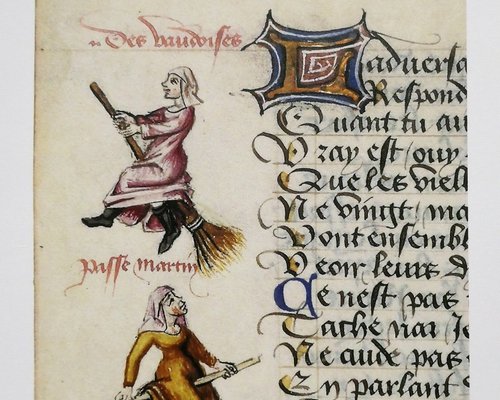 Des vaudoises
passe martin
Ladversa
Respond
Quant tu au
Vray est / ouy
Que les vieill
Ne vingt / ma
Vont ensembl
Veoir leurs d
Ce nest pas
Tache
Ne aude pas
En parlant d